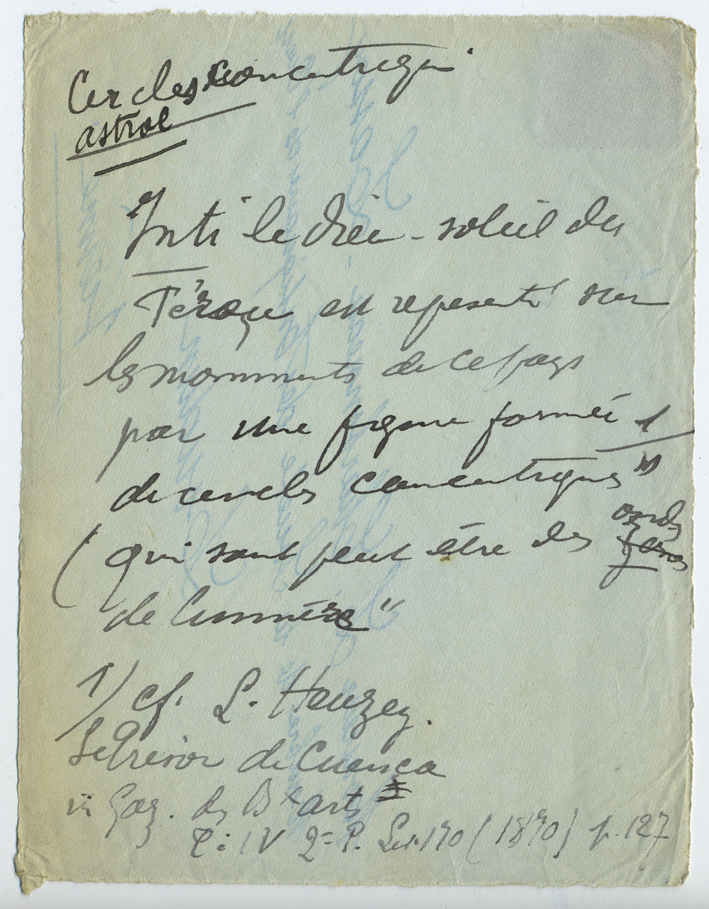 Cercles concentriqu
astral
Inti le dieu-soleil des
Péroze est representé sur
les monuments de ce pays
par une figure formée 1/
de cercles concentriques"
(qui sont peut être des ondes
de lumière"
1/ cf. L. Heuzey.
Le trésor de Cuenca
in Gaz. des Bx arts
T: IV 2e P. (1870) p. 127